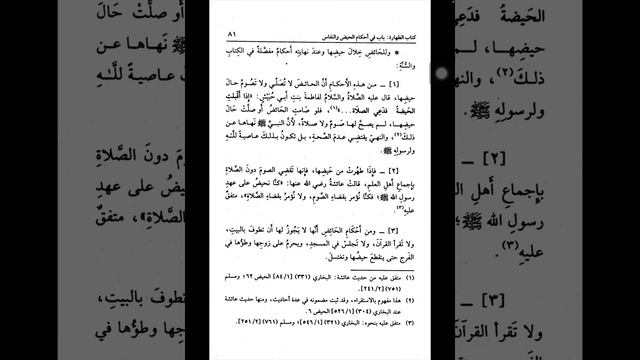 كتاب الطهارة: باب في أحكام الحيض والنفاس ٨١
* وللحائض خلال حيضها وعند نهايته أحكامٌ مفصلةٌ في الكتاب
والسُّنَّة:
[١] ـ من هذه الأحكام أنَّ الحائضَ لا تُصَلِّي ولا تَصُومُ حالَ
حيضِها، قال عليه الصَّلاةُ والسَّلامُ لفاطمةَ بنتِ أبي حُبَيْش: «إذا أَقْبَلَتِ
الحَيضَةُ فدَعِي الصَّلاةَ...»(١)، فلو صامَتِ الحائضُ أو صلَّتْ حَالَ
حيضِها، لم يصحَّ لها صومٌ ولا صلاةٌ، لأنَّ النبيَّ ﷺ نَهاها عن
ذلك(٢)، والنهيُ يقتضِي عدمَ الصِّحةِ، بل تكونُ بذلكَ عاصيةً للَّهِ
ولرسولِهِ ﷺ.
[٢] ـ فإذا طَهُرتْ من حَيضِها، فإنَّها تَقضِي الصومَ دونَ الصَّلاةِ
بإجماعِ أهلِ العلمِ، قالتْ عائشةُ رضي الله عنها: «كُنَّا نحيضُ على عهدِ
رسولِ اللهِ ﷺ؛ فكُنَّا نُؤمر بقضاءِ الصَّومِ، ولا نُؤمَر بقضاءِ الصَّلاةِ»، متفقٌ
عليهِ(٣).
[٣] ـ ومن أحْكامِ الحَائِضِ أنَّها لا يَجُوزُ لها أن تطوفَ بالبيتِ،
ولا تَقرأَ القرآنَ، ولا تَجلسَ في المسجدِ، ويحرمُ على زوجِها وطؤُها في
الفَرجِ حتى ينقطعَ حيضُها وتغتسلَ.
(١) متفق عليه من حديث عائشة: البخاري (٣٣١) [٨٤/١] الحيض ٦٢؛ ومسلم
(٧٥١) [٢٤١/٢].
(٢) هذا مفهوم بالاستقراء، وقد ثبت مضمونه في عدة أحاديث، ومنها حديث عائشة
عند البخاري (٣٠٤) [٥٢٦/١] الحيض ٦.
(٣) متفق عليه بنحوه: البخاري (٣٢١) [٥٤٦/١]؛ ومسلم (٧٦١) [٢٥١/٢].